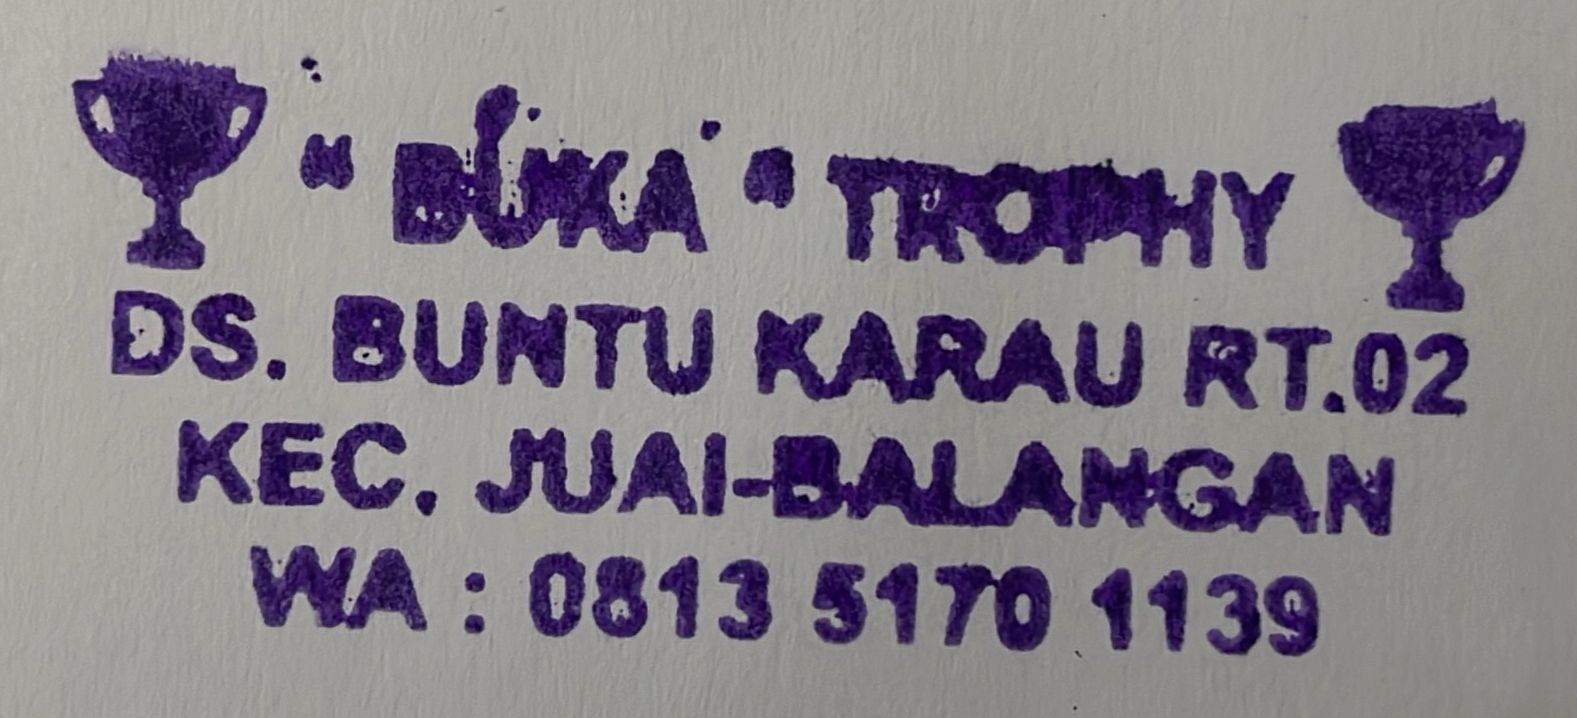 " BUKA " TROPHY
DS. BUNTU KARAU RT.02
KEC. JUAI-BALANGAN
WA : 0813 5170 1139